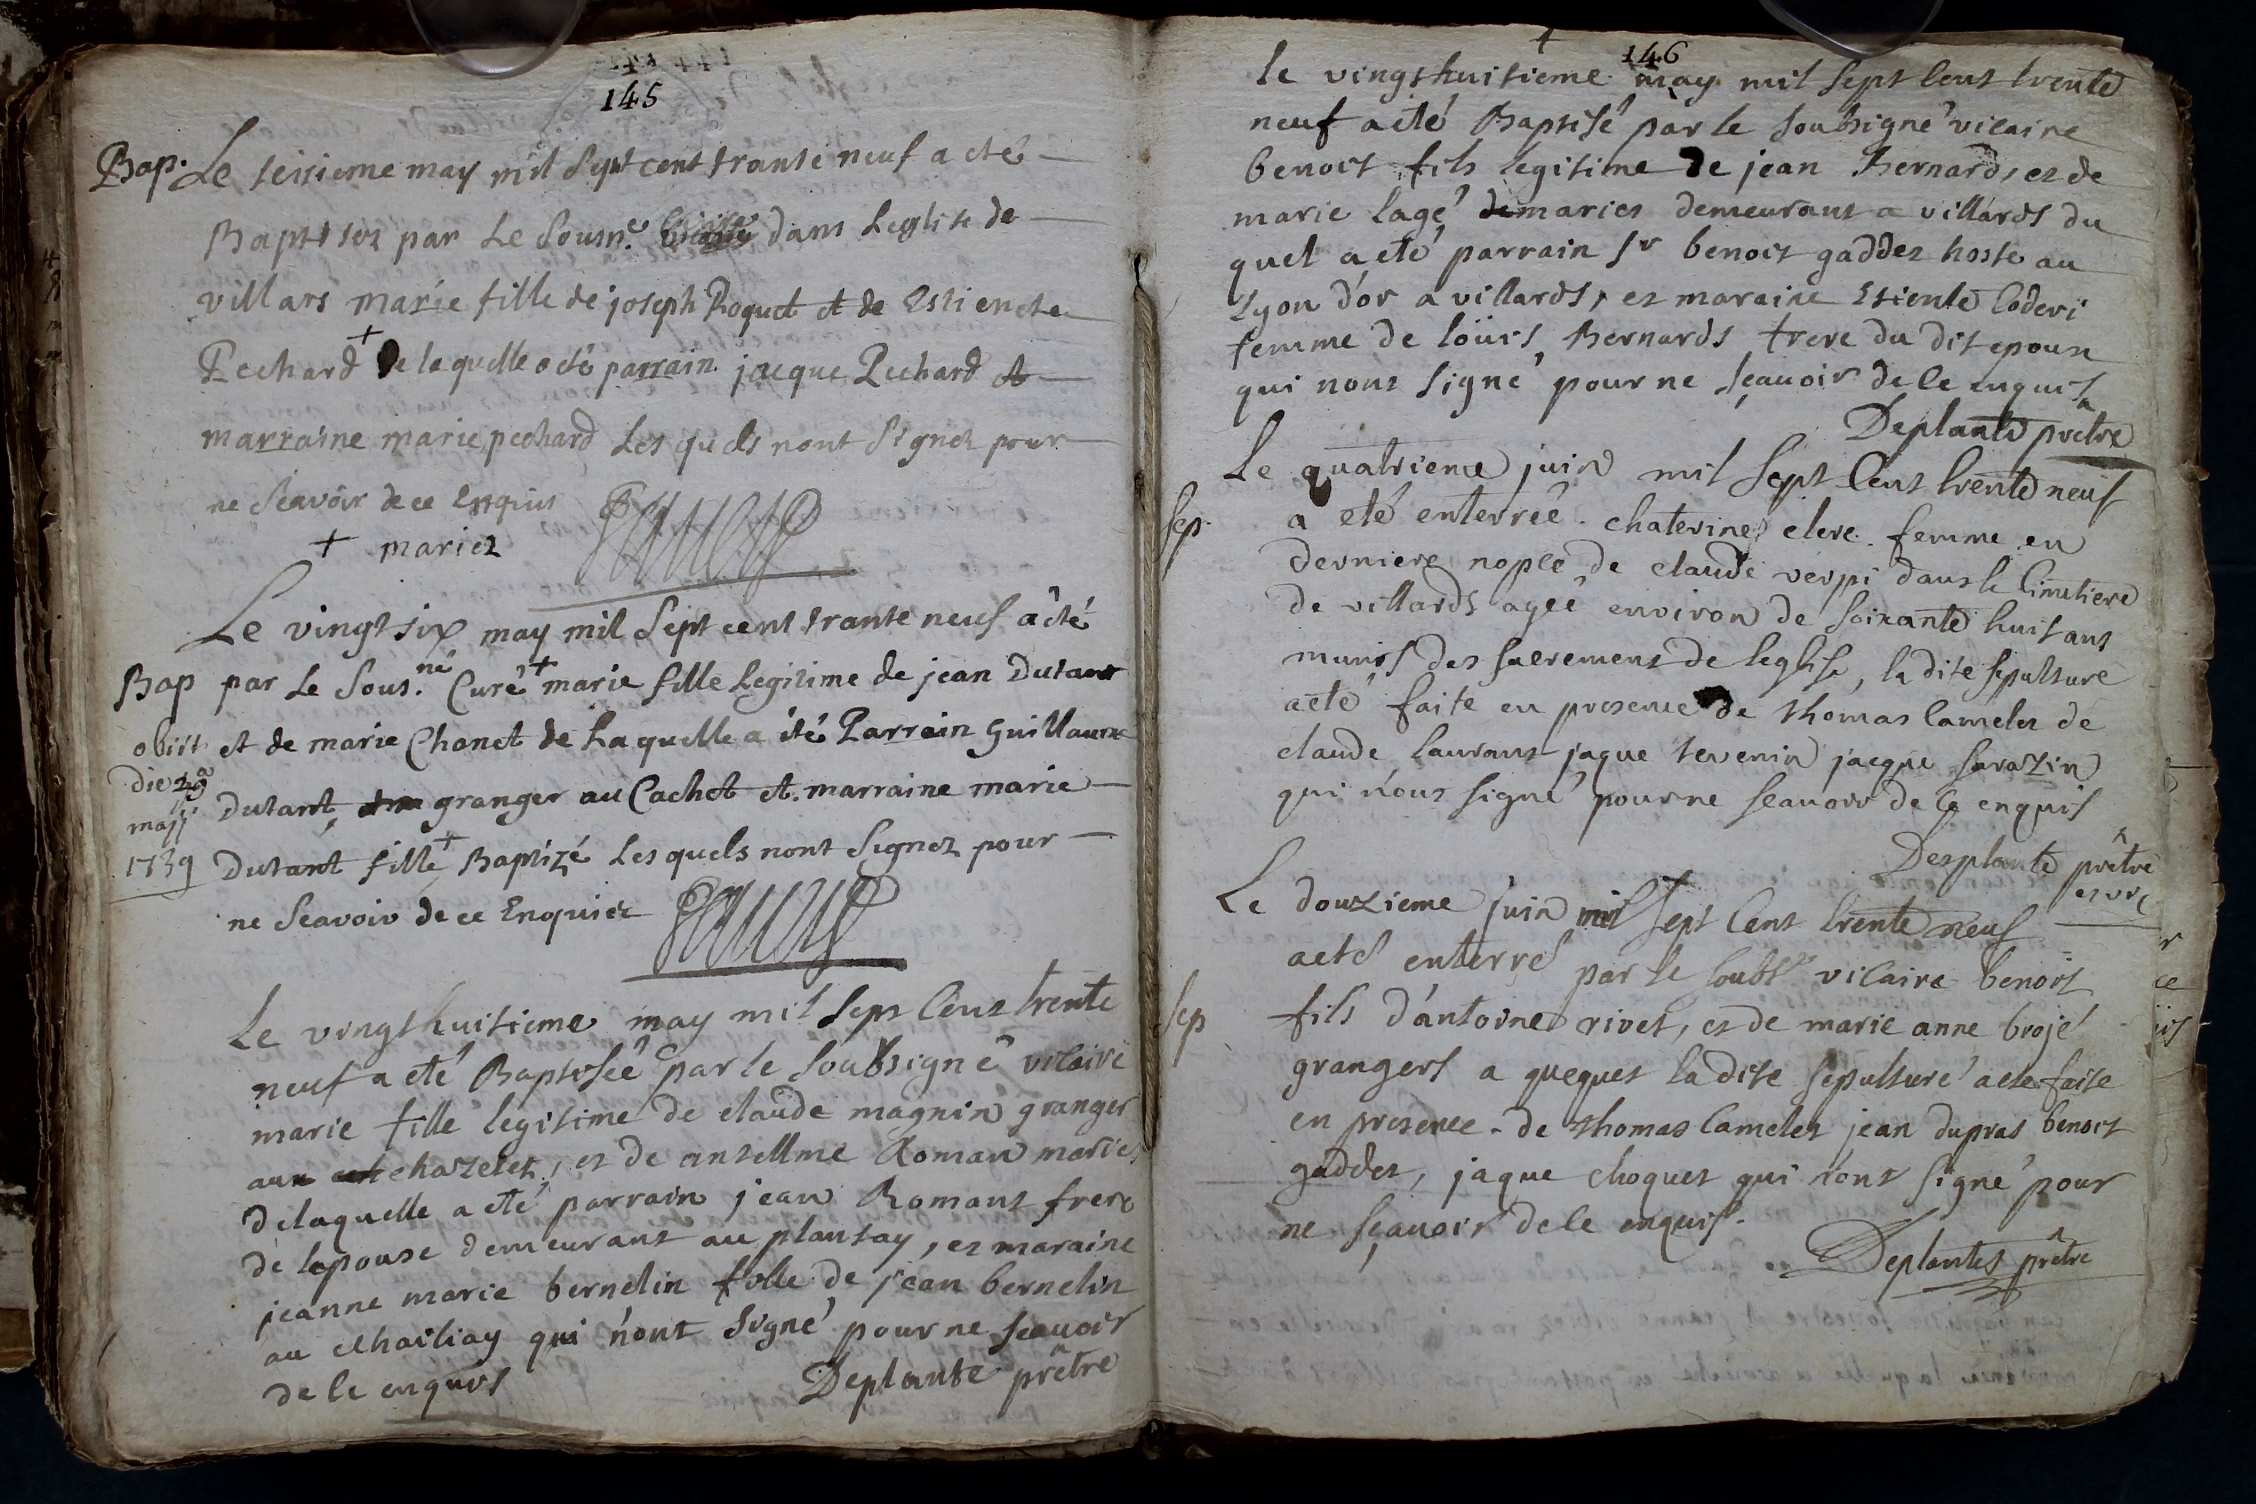 145
Bap. Le seisieme may mil sept cent trante neuf a eté
Baptisez par Le Sousn.é dans Leglise de
villars marie fille de joseph Roquet et de Estienete
Pechard + de laquelle a eté parrain jacque Pechard et
marraine marie pechard Les quels nont Signez pour
ne Scavoir de ce Enquis
+ mariez
Le vingt six may mil Sept cent trante neuf a été
Bap par Le Sous.né Curé + marie fille Legitime de jean Dutant
obiit et de marie Chanet de Laquelle a été Parrain Guillaume
die 29a Dutant, granger au Cachet et marraine marie
maji
1739 Dutant fille + Baptizé Les quels nont Signez pour
ne Scavoir de ce Enquiez
Le vingt huitieme may mil sept Cent trente
neuf a eté Baptisée par le soubsigné vicaire
marie fille legitime de claude magnin granger
aux chazelez, et de antellme Roman mariez
delaquelle a eté parrain jean Romant frere
de lepouse demeurant au plantay, et maraine
jeanne marie bernelin fille de jean bernelin
au Chailiay qui n'ont signé pour ne scauoir
de ce enquis Deplante prêtre
146
le vingt huitieme may mil sept Cent trente
neuf a eté Baptisé par le soubsigné vicaire
benoit fils legitime de jean Bernard, et de
marie lagé mariez demeurant a villards du
quel a eté parrain sr benoit gaddez hoste au
Lyon d'or a villards, et maraine Etiente Coderi
femme de loüis Bernards frere du dit epoux
qui nont signé pour ne sçauoir de ce enquis
Deplante prêtre
Le quatrieme juin mil sept Cent trente neuf
Sep. a eté enterrée chaterine clerc femme en
derniere nopce de claude verpi dans le Cimetiere
de villards agée environ de soixante huit ans
munis des sacremens de leglise, la dite sepulture
a eté faite en presence de thomas Camelet de
claude laurant jaque tevenin jacque sarazin
qui n'ont signé pour ne scauoir de ce enquis
Desplante prêtre
et vre
Le douzieme juin mil sept Cent trente neuf
a eté enterré par le soubs.é vicaire benoit
Sep fils d'antoine rivet, et de marie anne brojé
grangers a quequet la dite sepulture a eté faite
en presence de thomas Camelet jean dupras benoit
gaddet, jaque choquet qui n'ont signé pour
ne sçauoir de ce enquis.
Deplantes prêtre